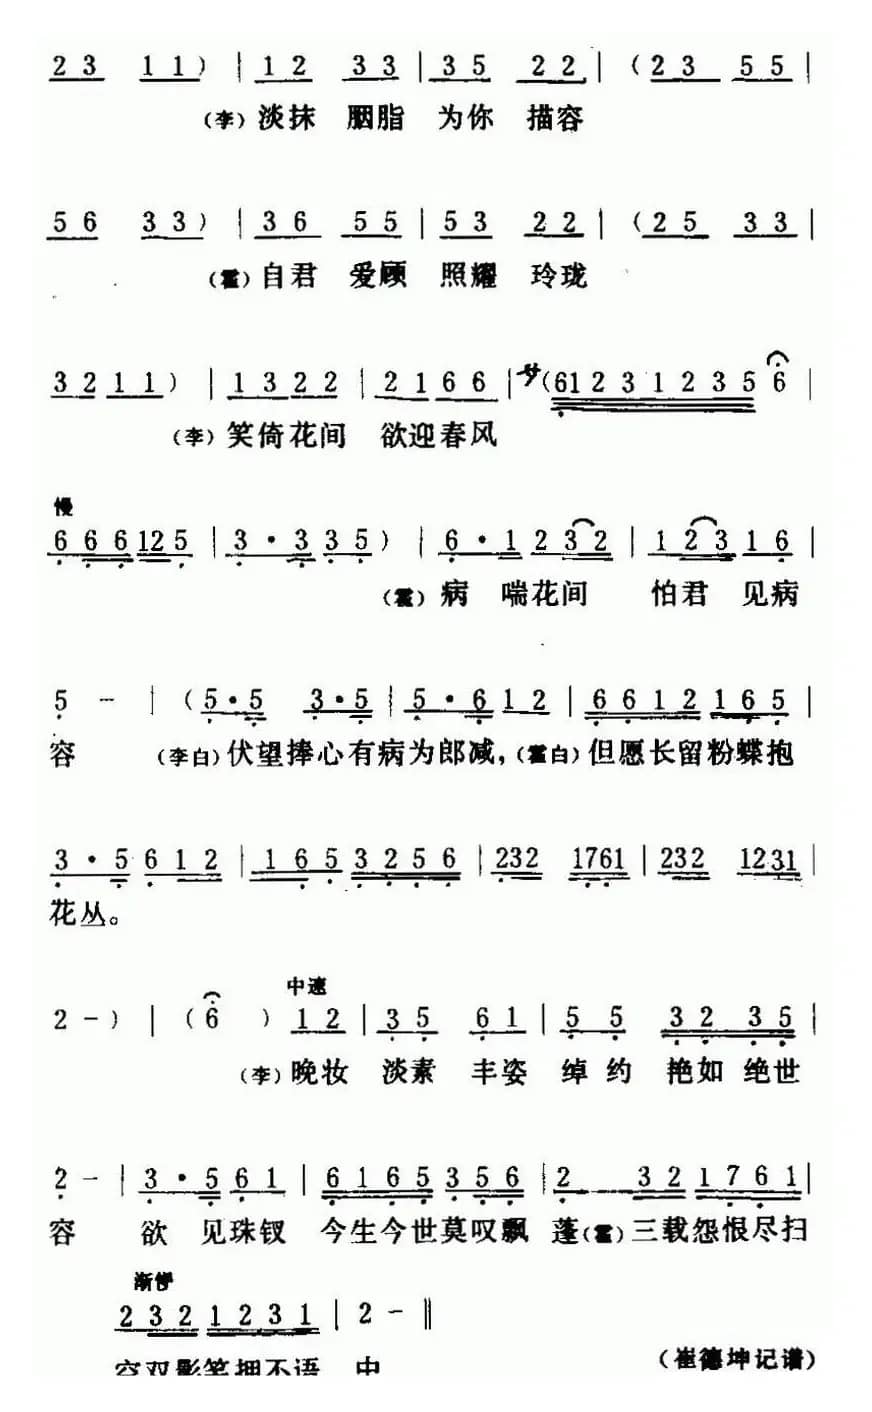 2 3 1 1 ) | 1 2 3 3 | 3 5 2 2 | ( 2 3 5 5 |
(李) 淡抹 胭脂 为你 描容
5 6 3 3 ) | 3 6 5 5 | 5 3 2 2 | ( 2 5 3 3 |
(霍) 自君 爱顾 照耀 玲珑
3 2 1 1 ) | 1 3 2 2 | 2 1 6 6 | サ ( 6 1 2 3 1 2 3 5 6 |
(李) 笑倚花间 欲迎春风
慢
6 6 6 1 2 5 | 3 · 3 3 5 ) | 6 · 1 2 3 2 | 1 2 3 1 6 |
(霍) 病 喘花间 怕君 见病
5 - | ( 5 · 5 3 · 5 | 5 · 6 1 2 | 6 6 1 2 1 6 5 |
容 (李白) 伏望捧心有病为郎减, (霍白) 但愿长留粉蝶抱
3 · 5 6 1 2 | 1 6 5 3 2 5 6 | 2 3 2 1 7 6 1 | 2 3 2 1 2 3 1 |
花丛。
中速
2 - ) | ( 6 ) 1 2 | 3 5 6 1 | 5 5 3 2 3 5 |
(李) 晚妆 淡素 丰姿 绰约 艳如 绝世
2 - | 3 · 5 6 1 | 6 1 6 5 3 5 6 | 2 3 2 1 7 6 1 |
容 欲 见珠钗 今生今世莫叹飘 蓬 (霍) 三载怨恨尽扫
渐慢
2 3 2 1 2 3 1 | 2 - ‖
空双影笑拥不语 中
(崔德坤记谱)